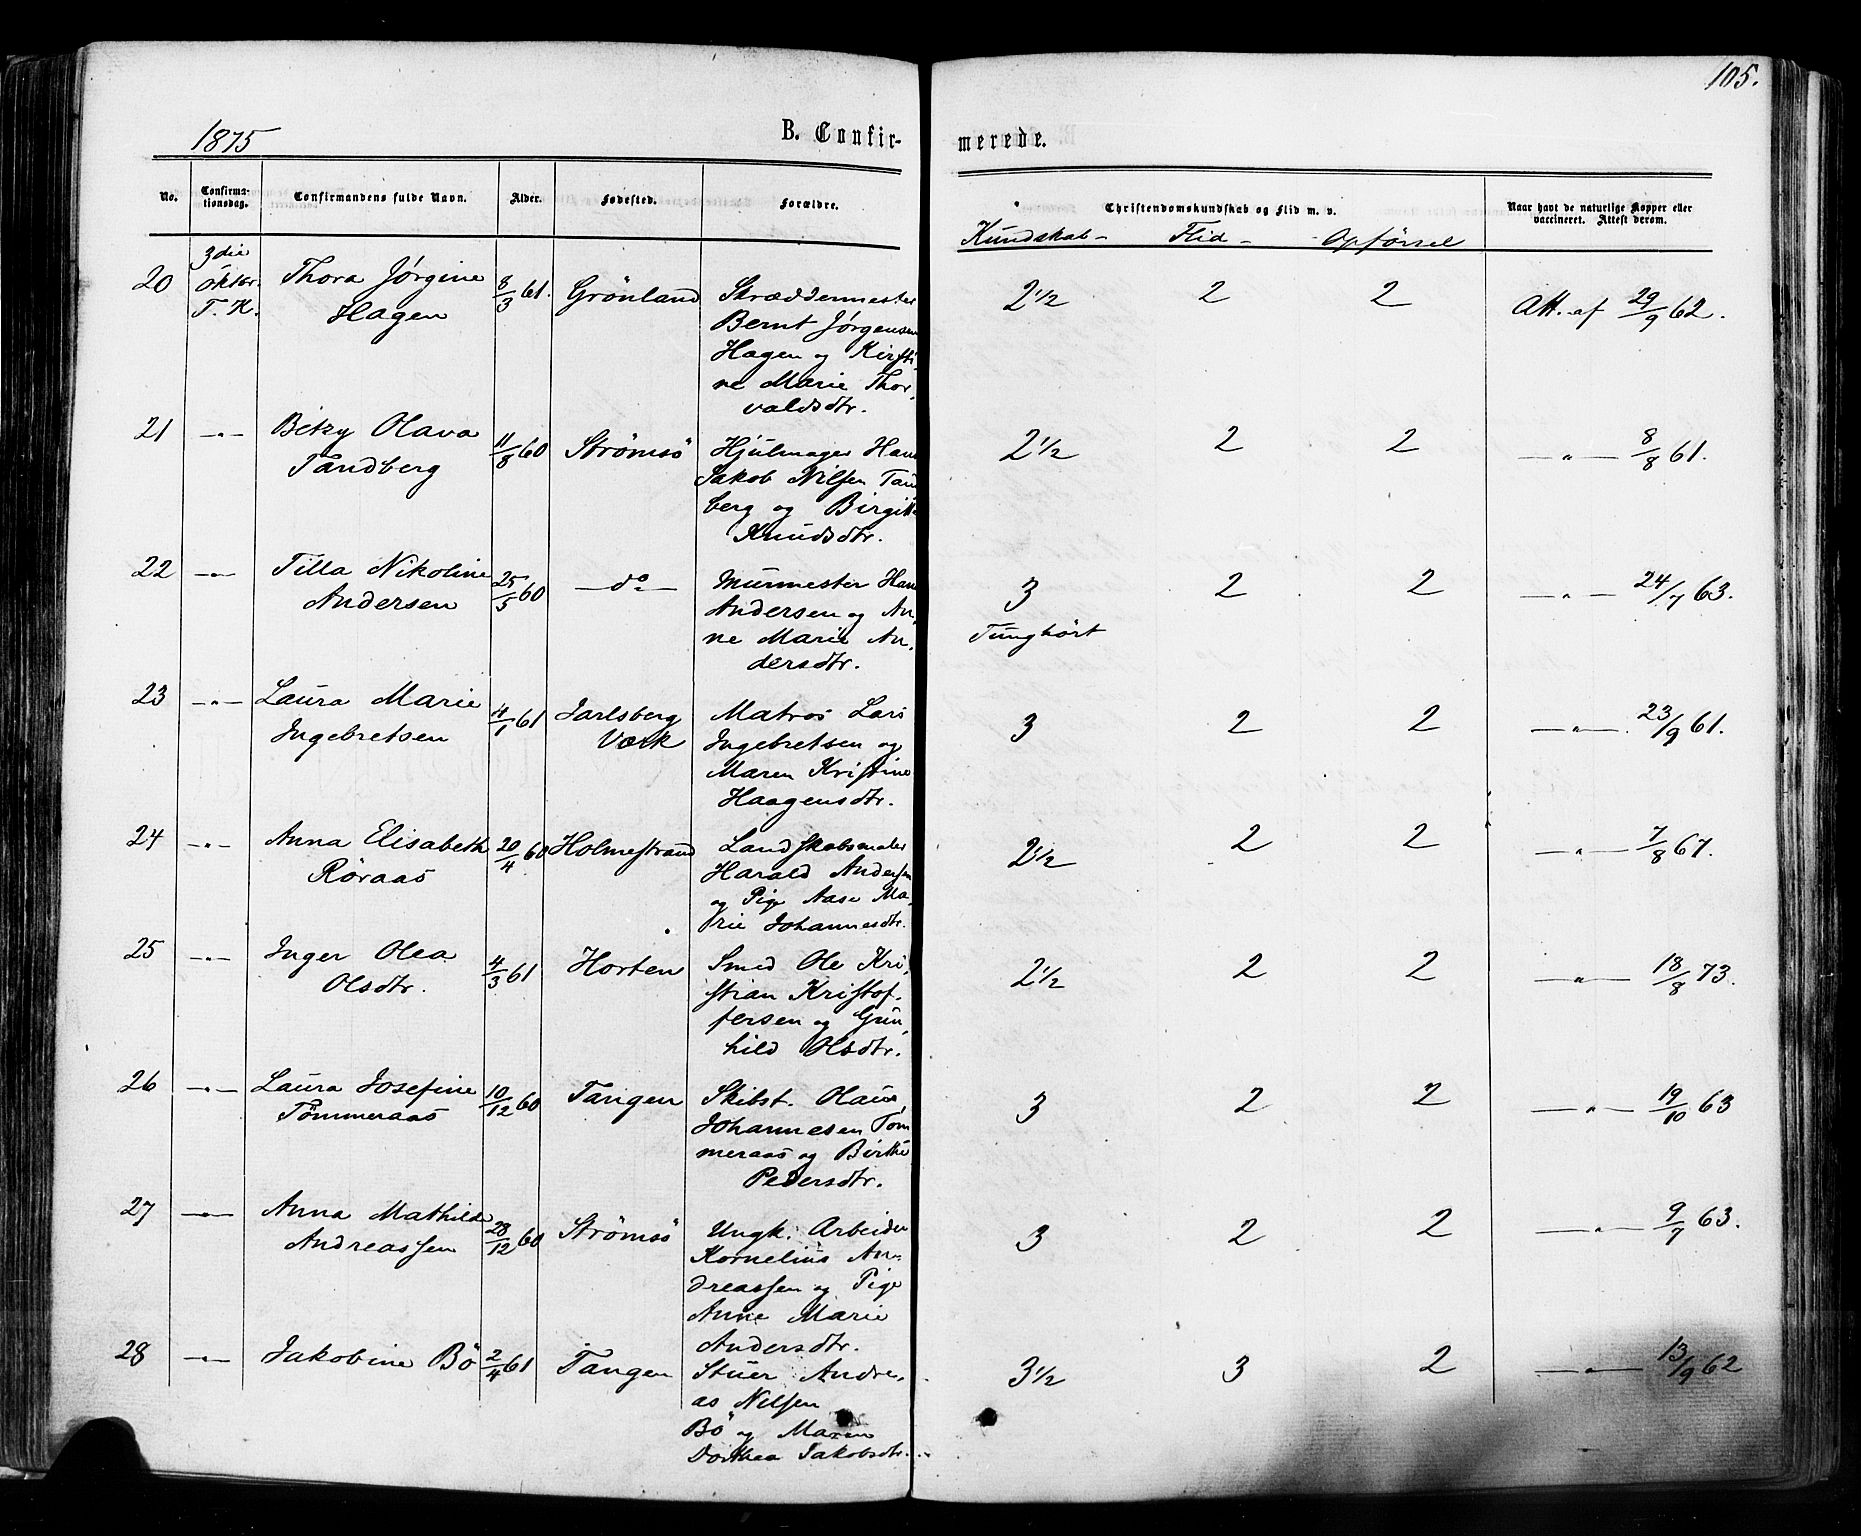 105.
1875
B. Confir-
merede.
No.
Confirma-
tionsdag.
Confirmandens fulde Navn.
Alder.
Fødested.
Forældre.
Christendomskundskab og Flid m. v.
Naar havt de naturlige Kopper eller
vaccineret. Attest derom.
Kundskab -
Flid -
Opførsel
20
3die
Oktbr.
T. K.
Thora Jørgine
Hagen
8/3 61.
Grönland
Skræddermester
Bernt Jørgensen
Hagen og Kirsti
ne Marie Thor,
valdsdtr.
2 1/2
2
2
Att. af 29/9 62.
21
—„—
Betzy Olava
Tandberg
11/8 60
Strömsö
Hjulmager Hans
Jakob Nilsen Tan
berg og Birgitte
Knudsdtr.
2 1/2
2
2
—„— 8/8 61.
22
—„—
Tilla Nikoline
Andersen
25/5 60
—do—
Murmester Hans
Andersen og An,
ne Marie An,
dersdtr.
3
Tunghört
2
2
—„— 24/7 63.
23
—„—
Laura Marie
Ingebretsen
4/1 61
Jarlsberg
Værk
Matros Lars
Ingebretsen og
Maren Kristine
Haagensdtr.
3
2
2
—„— 23/9 61.
24
—„—
Anna Elisabeth
Röraas
20/4 60
Holmestrand
Landskabsmaler
Harald Andersen
og Pige Aase Ma,
rie Johannesdtr.
2 1/2
2
2
—„— 7/8 67.
25
—„—
Inger Olea
Olsdtr.
4/3 61
Horten
Smed Ole Kri,
stian Kristof,
fersen og Gun,
hild Olsdtr.
2 1/2
2
2
—„— 18/8 73.
26
—„—
Laura Josefine
Tömmeraas
10/12 60
Tangen
Skibst. Olaus
Johannesen Töm
meraas og Birthe
Pedersdtr.
3
2
2
—„— 19/10 63
27
—„—
Anna Mathilde
Andreassen
28/12 60
Strömsö
Ungk. Arbeider
Kornelius An-
dreassen og Pige
Anne Marie
Andersdtr.
3
2
2
—„— 9/7 63.
28
—„—
Jakobine Bö
2/4 61
Tangen
Stuer Andre,
as Nilsen
Bö og Maren
Dorthea Jakobsdtr.
3 1/2
3
2
—„— 13/9 62